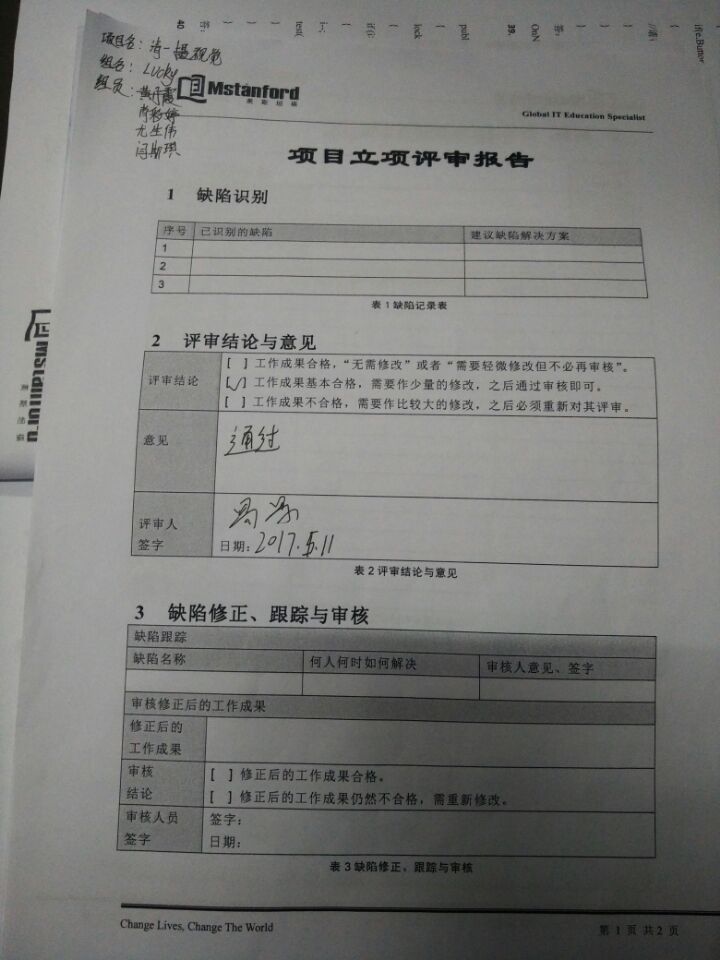 项目名:清一塭视觉
组名:Lucky
组员:黄丹霞
肖彩婷
尤生伟
闫斯琪
Mstanford
美斯坦福
Global IT Education Specialist
项目立项评审报告
1 缺陷识别
序号 已识别的缺陷 建议缺陷解决方案
1
2
3
表 1 缺陷记录表
2 评审结论与意见
评审结论
[ ] 工作成果合格,“无需修改”或者“需要轻微修改但不必再审核”。
[✓] 工作成果基本合格,需要作少量的修改,之后通过审核即可。
[ ] 工作成果不合格,需要作比较大的修改,之后必须重新对其评审。
意见 通过
评审人
签字 日期:2017.5.11
表 2 评审结论与意见
3 缺陷修正、跟踪与审核
缺陷跟踪
缺陷名称 何人何时如何解决 审核人意见、签字
审核修正后的工作成果
修正后的
工作成果
审核 [ ] 修正后的工作成果合格。
结论 [ ] 修正后的工作成果仍然不合格,需重新修改。
审核人员 签字:
签字 日期:
表 3 缺陷修正、跟踪与审核
Change Lives, Change The World
第 1 页 共 2 页